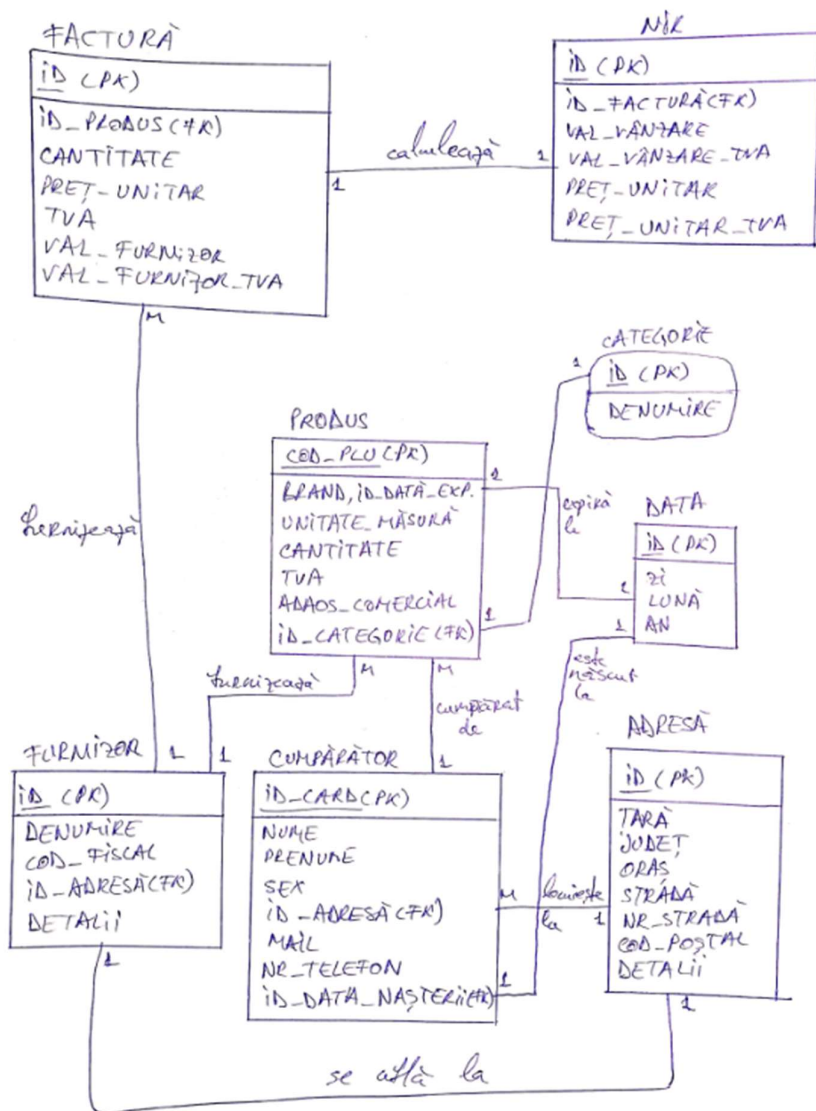 FACTURĂ
ID (PK)
ID_PRODUS (FK)
CANTITATE
PREȚ_UNITAR
TVA
VAL_FURNIZOR
VAL_FURNIZOR_TVA
M
calculează
1
1
NIR
ID (PK)
ID_FACTURĂ (FK)
VAL_VÂNZARE
VAL_VÂNZARE_TVA
PREȚ_UNITAR
PREȚ_UNITAR_TVA
CATEGORIE
1
ID (PK)
DENUMIRE
PRODUS
COD_PLU (PK)
BRAND, ID_DATĂ_EXP.
UNITATE_MĂSURĂ
CANTITATE
TVA
ADAOS_COMERCIAL
ID_CATEGORIE (FK)
1
1
M
M
expiră
la
DATA
ID (PK)
ZI
LUNĂ
AN
1
1
este
născut
la
furnizează
furnizează
cumpărat
de
FURNIZOR
1
1
ID (PK)
DENUMIRE
COD_FISCAL
ID_ADRESĂ (FK)
DETALII
1
CUMPĂRĂTOR
1
ID_CARD (PK)
NUME
PRENUME
SEX
ID_ADRESĂ (FK)
MAIL
NR_TELEFON
ID_DATA_NAȘTERII (FK)
M
1
locuiește
la
1
ADRESĂ
ID (PK)
TARĂ
JUDEȚ
ORAS
STRADĂ
NR_STRADĂ
COD_POȘTAL
DETALII
1
se află la